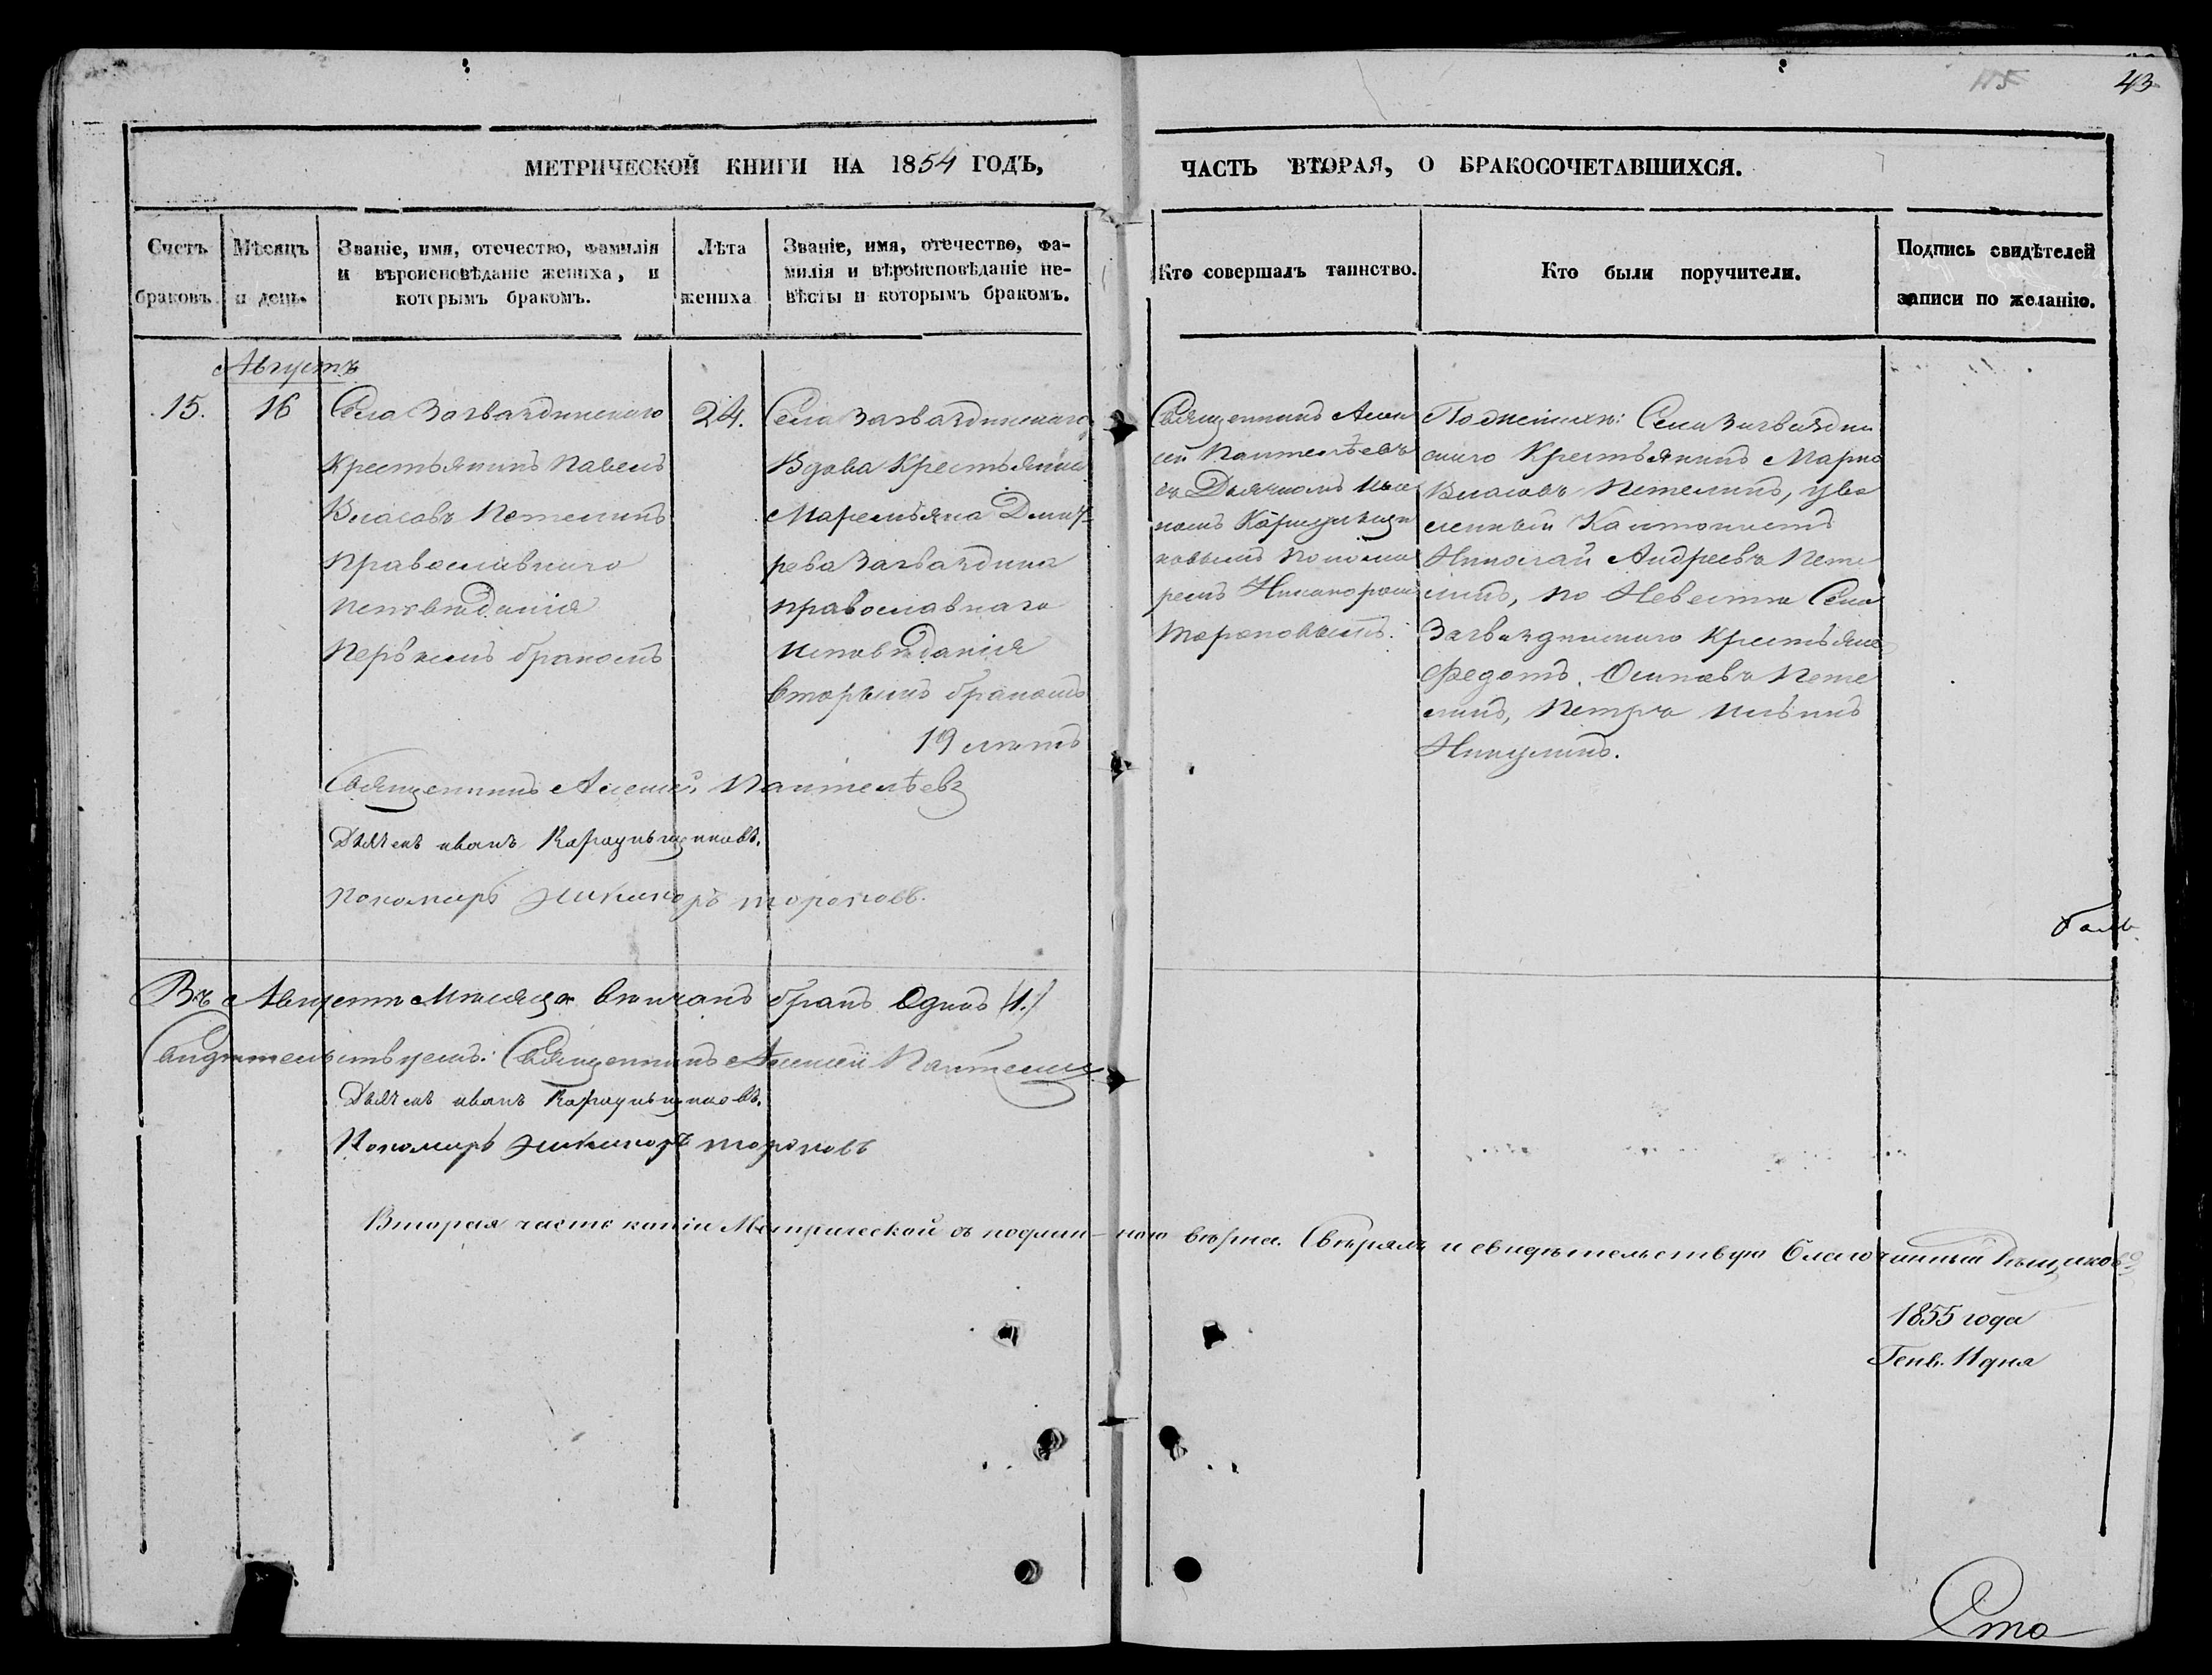 43
МЕТРИЧЕСКОЙ КНИГИ НА 1854 ГОДЪ,
ЧАСТЬ ВТОРАЯ, О БРАКОСОЧЕТАВШИХСЯ.
Счетъ
браковъ.
Мѣсяцъ
и день.
Званіе, имя, отечество, фамилія
и вѣроисповѣданіе жениха, и
которымъ бракомъ.
Лѣта
жениха
Званіе, имя, отечество, фа-
милія и вѣроисповѣданіе не-
вѣсты и которымъ бракомъ.
Кто совершалъ таинство.
Кто были поручители.
Подпись свидѣтелей
записи по желанію.
Августъ
15.
16
Села Загваздинскаго
Крестьянинъ Павелъ
Власовъ Петелинъ
Православнаго
Исповѣданія
Первымъ бракомъ
24.
Села Загваздинскаго
Вдова Крестьянка
Маремьяна Дмит-
рева Загваздина
православнаго
Исповѣданія
вторымъ бракомъ
19 лѣтъ
Священникъ Алек
сій Пантелѣевъ
съ Дьячкомъ Ива
номъ Караульщи
ковымъ Понома
ремъ Никаноромъ
Тороповымъ.
По женихѣ: Села Загваздин
скаго Крестьянинъ Марко
Власовъ Петелинъ, уво
ленный Кантонистъ
Николай Андреевъ Пете
линъ, по Невестѣ Села
Загваздинскаго Крестьяне
Федотъ Осиповъ Пете
линъ, Петръ Ильинъ
Никулинъ.
Священникъ Алексій Пантелѣевъ
Дьячекъ иванъ Караульщиковъ.
Пономарь Никаноръ тороповъ.
Въ Августѣ Мѣсяцѣ вѣнчанъ бракъ Одинъ /1./
Свидѣтельствуемъ: Священникъ Алексій
Дьячекъ иванъ Караульщиковъ.
Пономарь Никаноръ тороповъ
Вторая часть копіи Метрической съ подлин-ною вѣрна. Свѣрялъ и свидѣтельствую Благочинный
1855 года
Генв. 11 дня